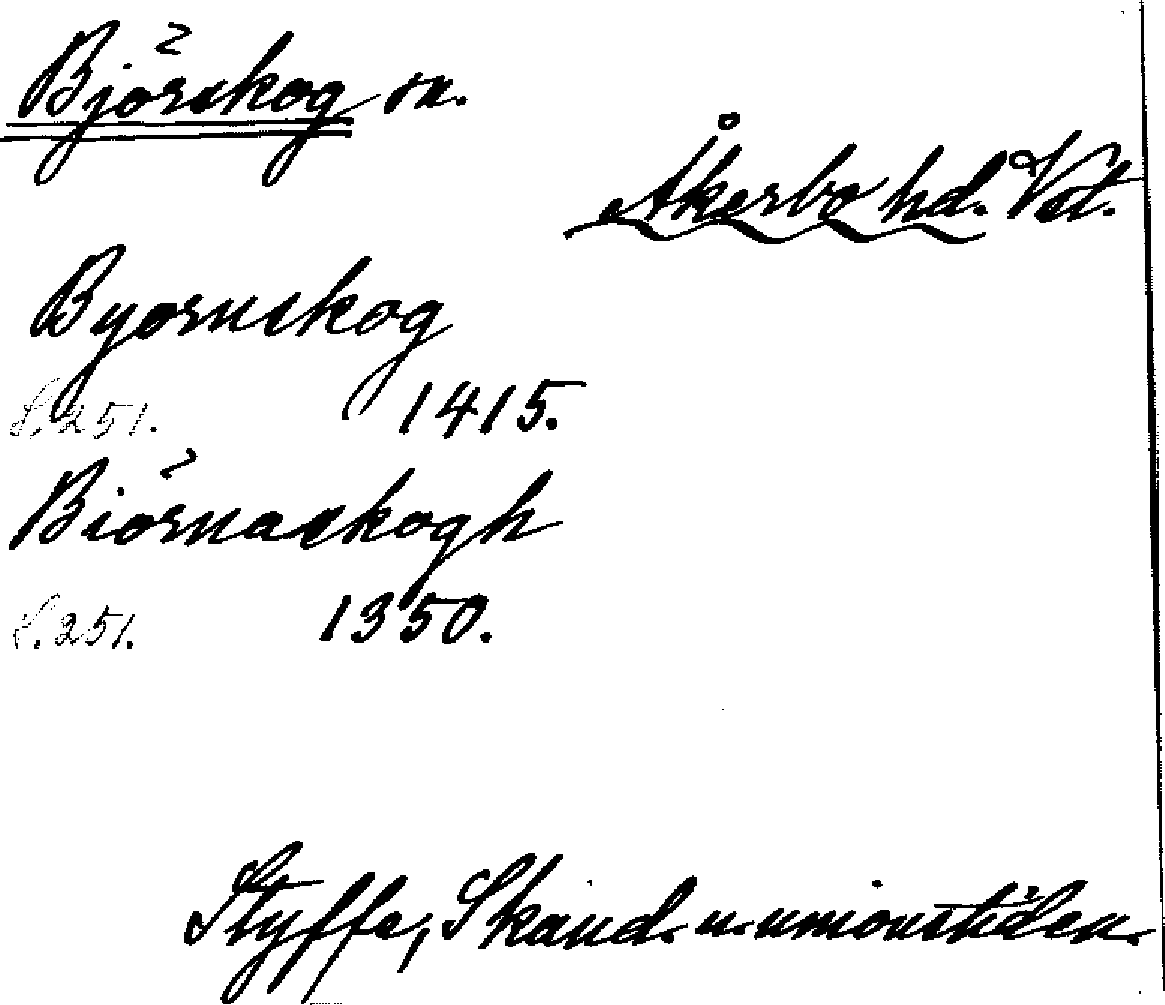 Björskog sn.
Åkerbo hd. Vst.
Byornskog
S. 251. 1415.
Biörnaskogh
S. 251. 1350.
Styffe, Skand. u. unionstiden.